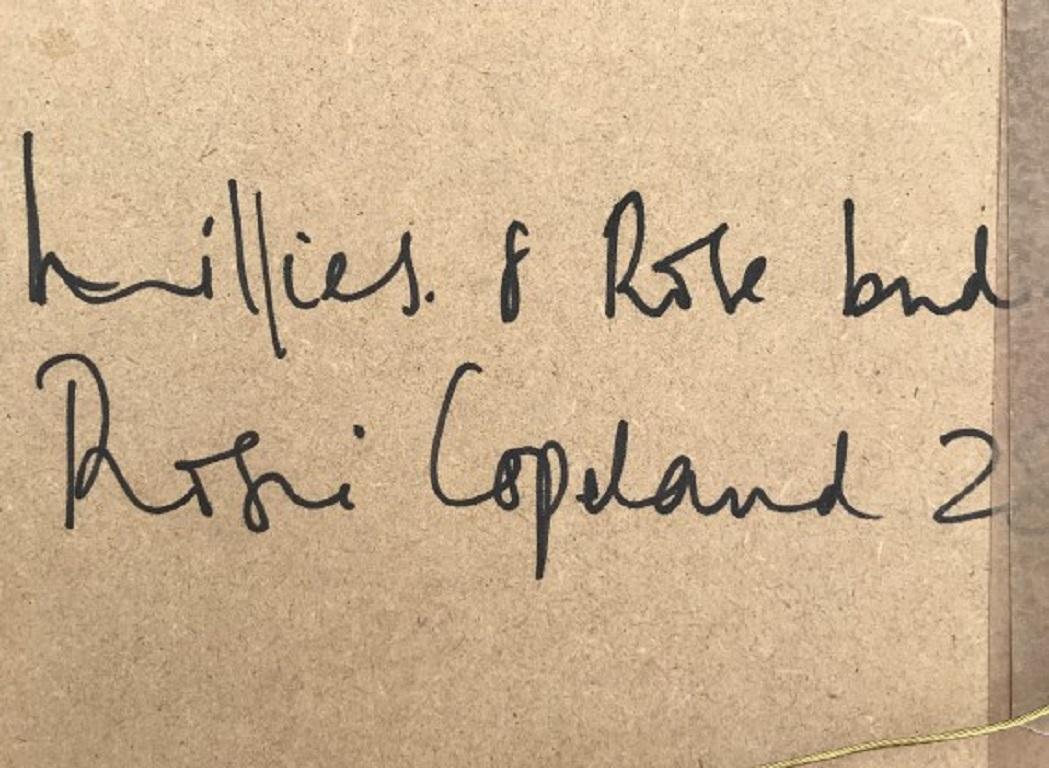 Lillies. & Rose bud
Rosi Copeland 2